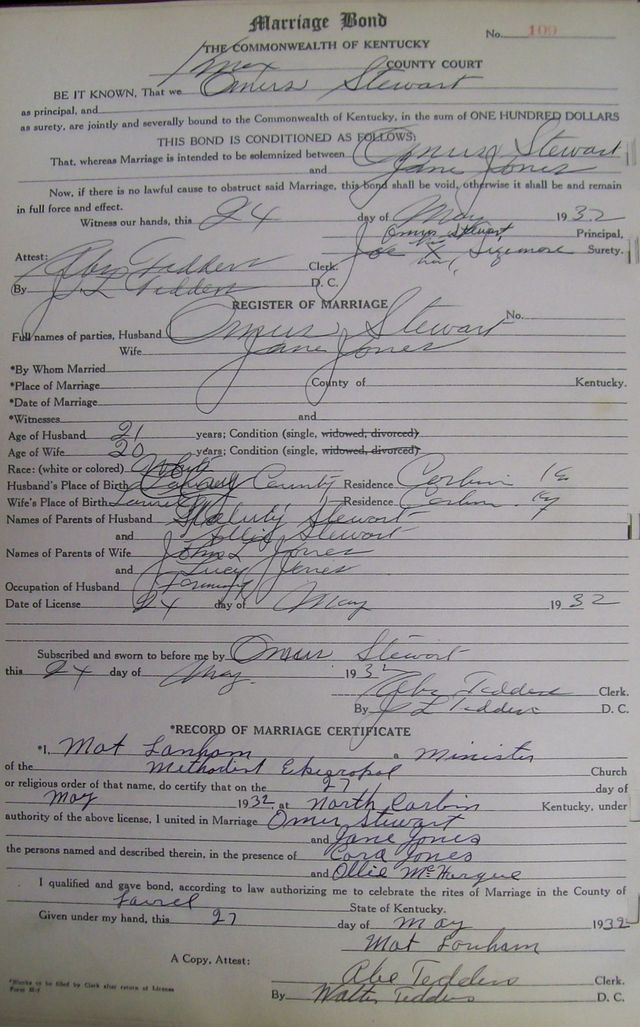 Marriage Bond
No. 109
THE COMMONWEALTH OF KENTUCKY
Knox COUNTY COURT
BE IT KNOWN, That we Omers Stewart
as principal, and
as surety, are jointly and severally bound to the Commonwealth of Kentucky, in the sum of ONE HUNDRED DOLLARS
THIS BOND IS CONDITIONED AS FOLLOWS:
That, whereas Marriage is intended to be solemnized between Omus Stewart
and Jane Jones
Now, if there is no lawful cause to obstruct said Marriage, this bond shall be void, otherwise it shall be and remain
in full force and effect.
Witness our hands, this 24 day of May 1932
Omus Stewart Principal,
Attest: Joe X Sizemore Surety.
Abe Tedders Clerk.
By J L Tedders D. C.
REGISTER OF MARRIAGE
No.
Full names of parties, Husband Omus Stewart
Wife Jane Jones
*By Whom Married
*Place of Marriage County of Kentucky.
*Date of Marriage
*Witnesses and
Age of Husband 21 years; Condition (single, widowed, divorced)
Age of Wife 20 years; Condition (single, widowed, divorced)
Race: (white or colored) White
Husband's Place of Birth County Residence Corbin Ky
Wife's Place of Birth Laurel Residence Corbin Ky
Names of Parents of Husband Stewart
and Stewart
Names of Parents of Wife John L Jones
and Lucy Jones
Occupation of Husband Farming
Date of License 24 day of May 1932
Subscribed and sworn to before me by Omus Stewart
this 24 day of May. 1932
Abe Tedders Clerk.
By J L Tedders D. C.
*RECORD OF MARRIAGE CERTIFICATE
*I, Mat Lanham a Minister
of the Methodist Ekepropol Church
or religious order of that name, do certify that on the 27 day of
May 1932 at North Corbin Kentucky, under
authority of the above license, I united in Marriage Omer Stewart
and Jane Jones
the persons named and described therein, in the presence of Cora Jones
and Ollie McHargue
I qualified and gave bond, according to law authorizing me to celebrate the rites of Marriage in the County of
Laurel State of Kentucky.
Given under my hand, this 27 day of May 1932
Mat Lanham
A Copy, Attest:
Abe Tedders Clerk.
*Blanks to be filed by Clerk after return of License
By Walter Tedders D. C.